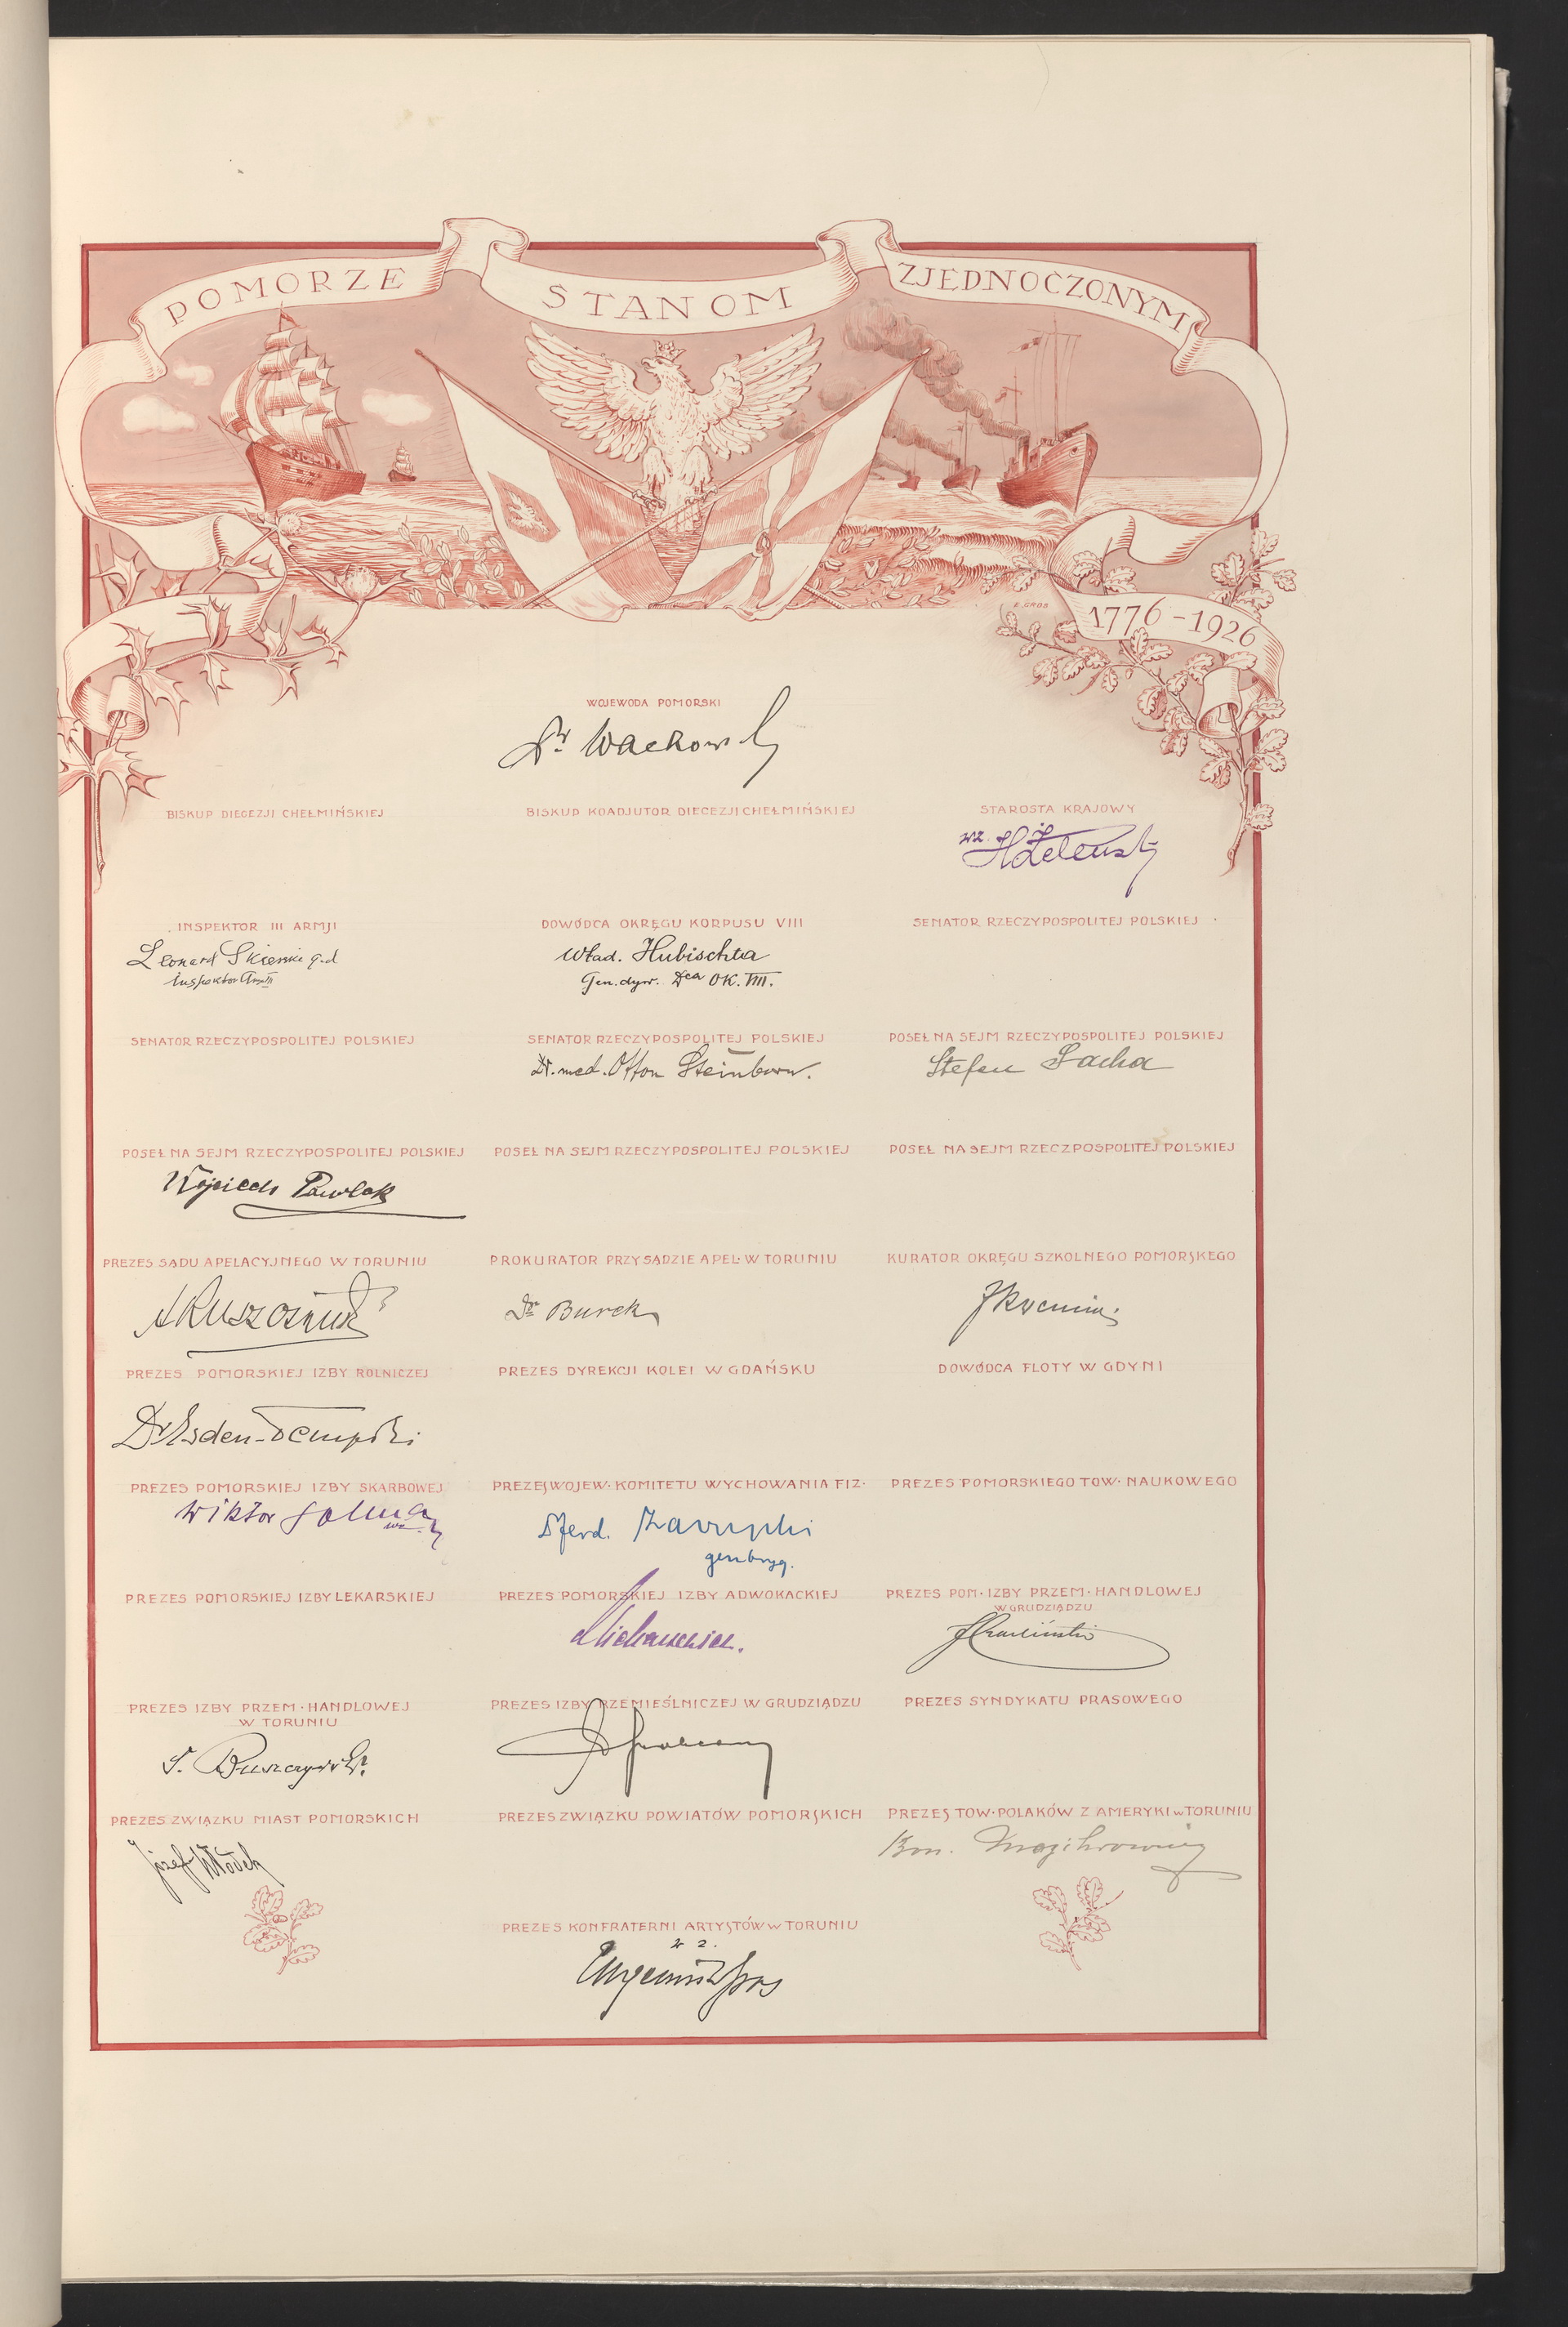 POMORZE STANOM ZJEDNOCZONYM
E. GROS
1776-1926
WOJEWODA POMORSKI
Dr Wachowski
BISKUP DIECEZJI CHEŁMIŃSKIEJ
BISKUP KOADJUTOR DIECEZJI CHEŁMIŃSKIEJ
STAROSTA KRAJOWY
wz.
INSPEKTOR III ARMJI
DOWÓDCA OKRĘGU KORPUSU VIII
SENATOR RZECZYPOSPOLITEJ POLSKIEJ
Leonard Skierski g.d
Inspektor
Wład. Hubischta
Gen. dyw. Dca OK. VIII.
SENATOR RZECZYPOSPOLITEJ POLSKIEJ
SENATOR RZECZYPOSPOLITEJ POLSKIEJ
POSEŁ NA SEJM RZECZYPOSPOLITEJ POLSKIEJ
Dr. med. Otton Steinborn.
Stefan Sacha
POSEŁ NA SEJM RZECZYPOSPOLITEJ POLSKIEJ
POSEŁ NA SEJM RZECZYPOSPOLITEJ POLSKIEJ
POSEŁ NA SEJM RZECZPOSPOLITEJ POLSKIEJ
Wojciech Pawlak
PREZES SĄDU APELACYJNEGO W TORUNIU
PROKURATOR PRZY SĄDZIE APEL. W TORUNIU
KURATOR OKRĘGU SZKOLNEGO POMORSKEGO
Dr Burek
PREZES POMORSKIEJ IZBY ROLNICZEJ
PREZES DYREKCJI KOLEI W GDAŃSKU
DOWÓDCA FLOTY W GDYNI
Dr Esden-Tempski
PREZES POMORSKIEJ IZBY SKARBOWEJ
PREZES WOJEW. KOMITETU WYCHOWANIA FIZ.
PREZES POMORSKIEGO TOW. NAUKOWEGO
Wiktor
Ferd. Zarzycki
gen bryg.
PREZES POMORSKIEJ IZBY LEKARSKIEJ
PREZES POMORSKIEJ IZBY ADWOKACKIEJ
PREZES POM. IZBY PRZEM. HANDLOWEJ
W GRUDZIĄDZU
PREZES IZBY PRZEM. HANDLOWEJ
W TORUNIU
PREZES IZBY RZEMIEŚLNICZEJ W GRUDZIĄDZU
PREZES SYNDYKATU PRASOWEGO
PREZES ZWIĄZKU MIAST POMORSKICH
PREZES ZWIĄZKU POWIATÓW POMORSKICH
PREZES TOW. POLAKÓW Z AMERYKI w TORUNIU
Józef Włodek
PREZES KONFRATERNI ARTYSTÓW w TORUNIU
w z.
Eugeniusz Gros